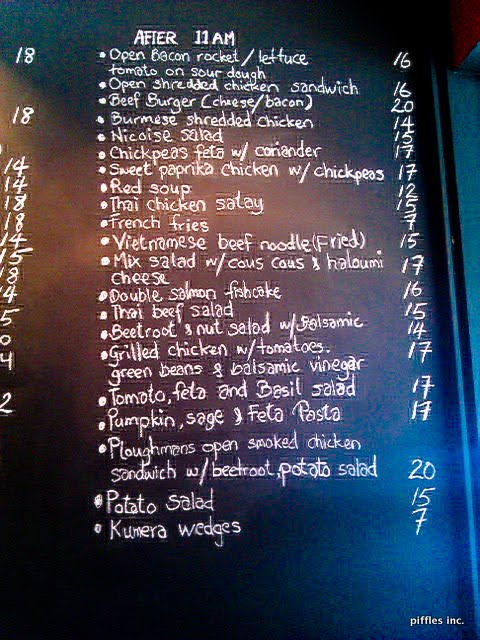 AFTER 11 AM
18 • Open Bacon rocket / lettuce 16
tomato on sour dough
• Open shredded chicken sandwich 16
• Beef Burger (cheese/bacon) 20
18 • Burmese shredded chicken 14
• Nicoise salad 15
• Chickpeas feta w/ coriander 17
14 • Sweet paprika chicken w/ chickpeas 17
14 • Red soup 12
18 • Thai chicken satay 15
18 • French fries 7
14 • Vietnamese beef noodle (Fried) 15
15 • Mix salad w/ cous cous & haloumi 17
8 cheese
4 • Double salmon fishcake 16
• Thai beef salad 15
5 • Beetroot & nut salad w/ Balsamic 14
0 • Grilled chicken w/ tomatoes. 17
4 green beans & balsamic vinegar
• Tomato, feta and Basil salad 17
2 • Pumpkin, sage & Feta Pasta 17
• Ploughmans open smoked chicken
sandwich w/ beetroot, potato salad 20
• Potato Salad 15
• Kumera wedges 7
piffles inc.